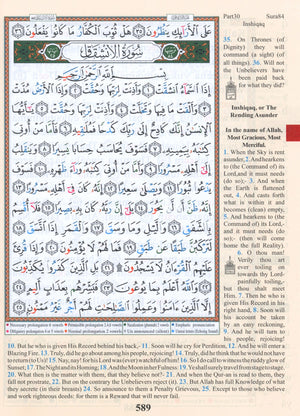 Part30 Sura84
Inshiqaq
عَلَى ٱلْأَرَآئِكِ يَنظُرُونَ ٣٥ هَلْ ثُوِّبَ ٱلْكُفَّارُ مَا كَانُوا۟ يَفْعَلُونَ ٣٦
سُورَةُ الانْشِقَاقِ
بِسْمِ ٱللَّهِ ٱلرَّحْمَٰنِ ٱلرَّحِيمِ
إِذَا ٱلسَّمَآءُ ٱنشَقَّتْ ١ وَأَذِنَتْ لِرَبِّهَا وَحُقَّتْ ٢ وَإِذَا ٱلْأَرْضُ مُدَّتْ ٣
وَأَلْقَتْ مَا فِيهَا وَتَخَلَّتْ ٤ وَأَذِنَتْ لِرَبِّهَا وَحُقَّتْ ٥ يَٰٓأَيُّهَا
ٱلْإِنسَٰنُ إِنَّكَ كَادِحٌ إِلَىٰ رَبِّكَ كَدْحًا فَمُلَٰقِيهِ ٦ فَأَمَّا مَنْ أُوتِىَ
كِتَٰبَهُۥ بِيَمِينِهِۦ ٧ فَسَوْفَ يُحَاسَبُ حِسَابًا يَسِيرًا ٨ وَيَنقَلِبُ
إِلَىٰٓ أَهْلِهِۦ مَسْرُورًا ٩ وَأَمَّا مَنْ أُوتِىَ كِتَٰبَهُۥ وَرَآءَ ظَهْرِهِۦ ١٠ فَسَوْفَ
يَدْعُوا۟ ثُبُورًا ١١ وَيَصْلَىٰ سَعِيرًا ١٢ إِنَّهُۥ كَانَ فِىٓ أَهْلِهِۦ مَسْرُورًا ١٣
إِنَّهُۥ ظَنَّ أَن لَّن يَحُورَ ١٤ بَلَىٰٓ إِنَّ رَبَّهُۥ كَانَ بِهِۦ بَصِيرًا ١٥ فَلَآ أُقْسِمُ
بِٱلشَّفَقِ ١٦ وَٱلَّيْلِ وَمَا وَسَقَ ١٧ وَٱلْقَمَرِ إِذَا ٱتَّسَقَ ١٨
لَتَرْكَبُنَّ طَبَقًا عَن طَبَقٍ ١٩ فَمَا لَهُمْ لَا يُؤْمِنُونَ ٢٠ وَإِذَا قُرِئَ
عَلَيْهِمُ ٱلْقُرْءَانُ لَا يَسْجُدُونَ ۩ ٢١ بَلِ ٱلَّذِينَ كَفَرُوا۟ يُكَذِّبُونَ
٢٢ وَٱللَّهُ أَعْلَمُ بِمَا يُوعُونَ ٢٣ فَبَشِّرْهُم بِعَذَابٍ أَلِيمٍ
٢٤ إِلَّا ٱلَّذِينَ ءَامَنُوا۟ وَعَمِلُوا۟ ٱلصَّٰلِحَٰتِ لَهُمْ أَجْرٌ غَيْرُ مَمْنُونٍ ٢٥
35. On Thrones (of
Dignity) they will
command (a sight) (of
all things). 36. Will not
the Unbelievers have
been paid back
for what they did?
Inshiqaq, or The
Rending Asunder
In the name of Allah,
Most Gracious, Most
Merciful.
1. When the Sky is rent
asunder, 2. And hearkens
to (the Command of) its
Lord, and it must needs
(do so);- 3. And when
the Earth is flattened
out, 4. And casts forth
what is within it and
becomes (clean) empty,
5. And hearkens to (the
Command of) its Lord,-
and it must needs (do
so);- (then will come
home the full Reality).
6. O thou man!
Verily thou art
ever toiling on
towards thy Lord-
painfully toiling,-
but thou shalt meet
Him. 7. Then he who is
given his Record in his
right hand, 8. Soon will
his account be taken
by an easy reckoning,
9. And he will turn to
his people, rejoicing!
10. But he who is given his Record behind his back,- 11. Soon will he cry for Perdition, 12. And he will enter a
Blazing Fire. 13. Truly, did he go about among his people, rejoicing! 14. Truly, did he think that he would not have
to return (to Us)! 15. Nay, nay! for his Lord was (ever) watchful of him! 16. So I do call to witness the ruddy glow of
Sunset; 17. The Night and its Homing; 18. And the Moon in her Fulness: 19. Ye shall surely travel from stage to stage.
20. What then is the matter with them, that they believe not?- 21. And when the Qur-an is read to them, they
fall not prostrate, 22. But on the contrary the Unbelievers reject (it). 23. But Allah has full Knowledge of what
they secrete (in their breasts) 24. So announce to them a Penalty Grievous, 25. Except to those who believe
and work righteous deeds: for them is a Reward that will never fail.
589